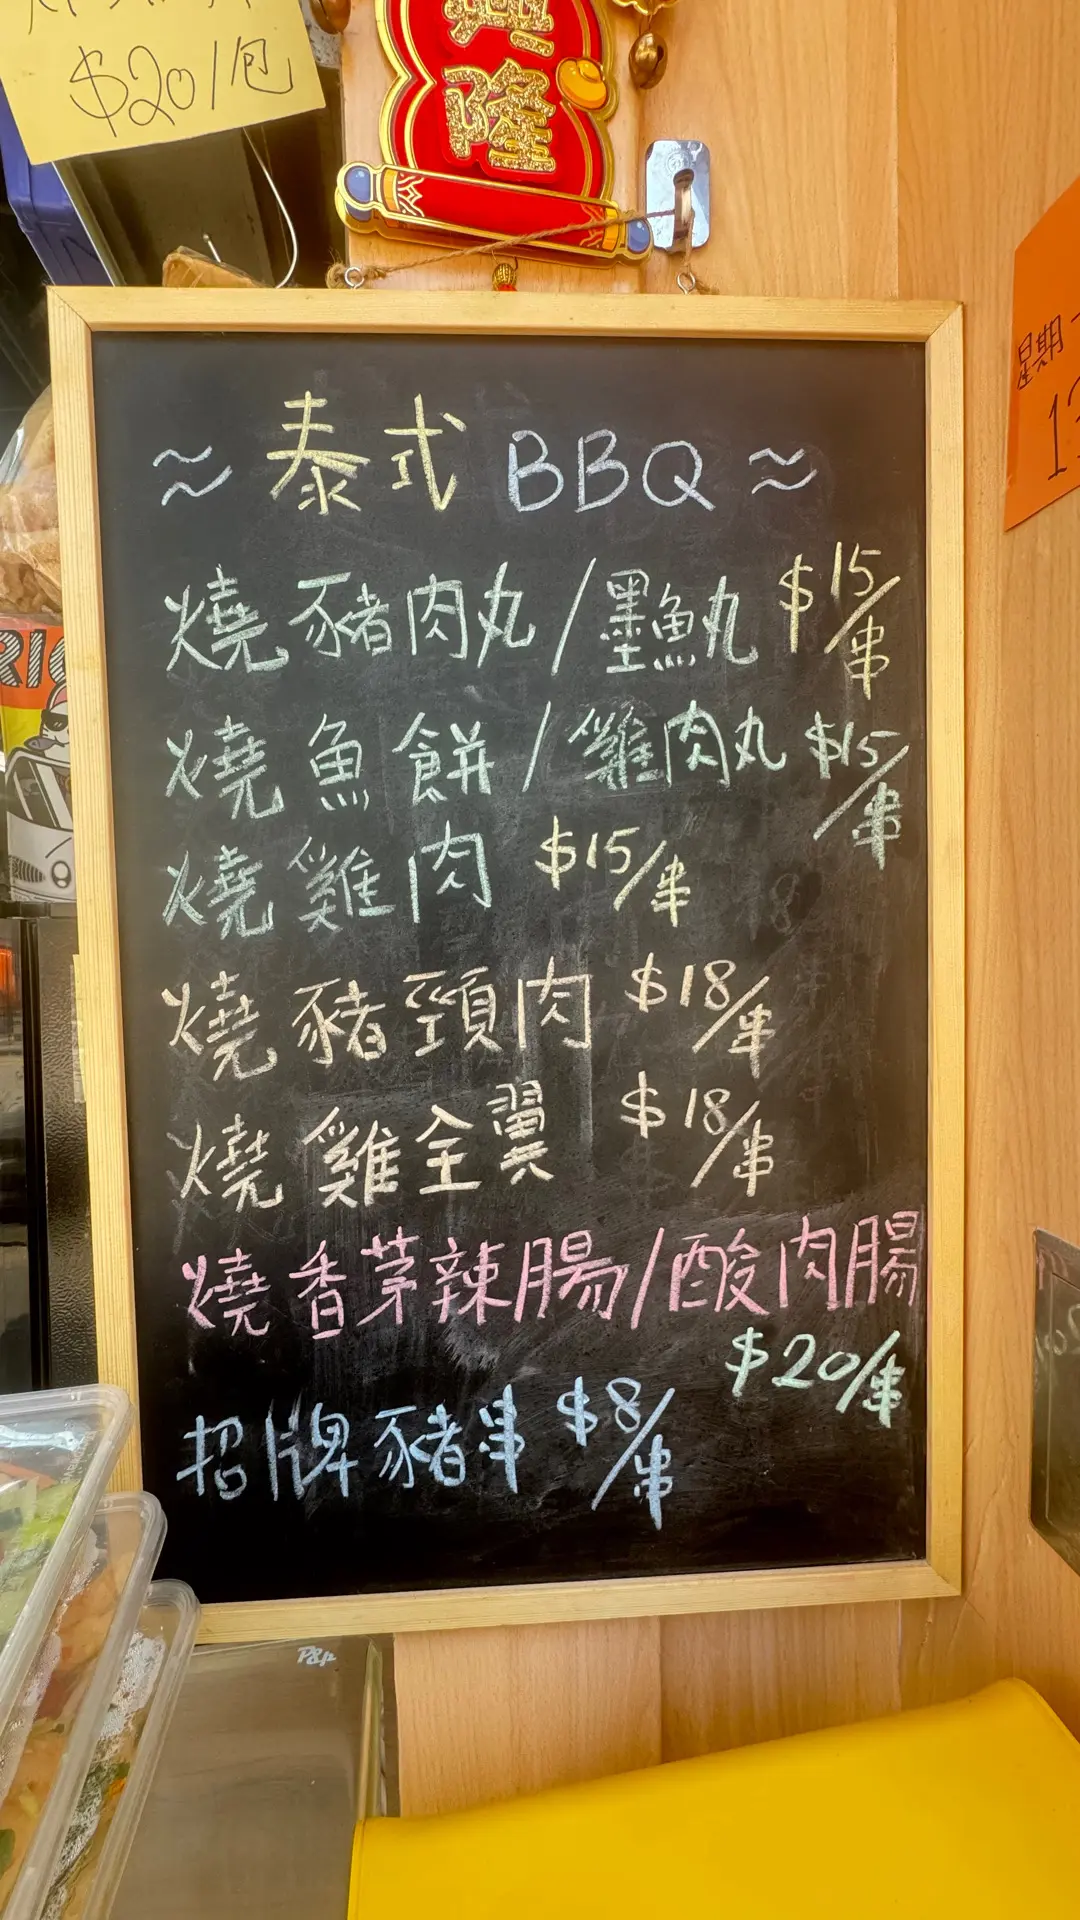 $20/包
隆
星期一
~ 泰式 BBQ ~
燒豬肉丸/墨魚丸 $15/串
燒魚餅/雞肉丸 $15/串
燒雞肉 $15/串
燒豬頸肉 $18/串
燒雞全翼 $18/串
燒香茅辣腸/酸肉腸
$20/串
招牌豬串 $8/串